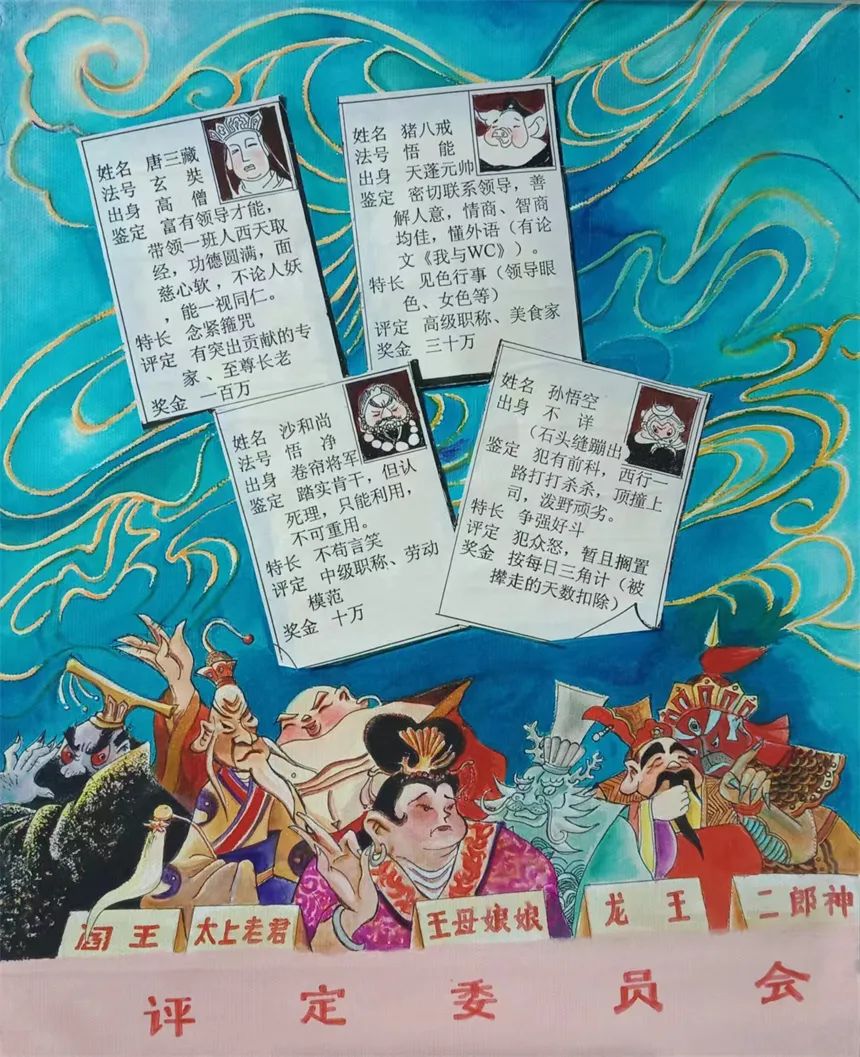 姓名 唐三藏
法号 玄奘
出身 高僧
鉴定 富有领导才能，
带领一班人西天取
经，功德圆满，面
慈心软，不论人妖
，能一视同仁。
特长 念紧箍咒
评定 有突出贡献的专
家、至尊长老
奖金 一百万
姓名 猪八戒
法号 悟能
出身 天蓬元帅
鉴定 密切联系领导，善
解人意，情商、智商
均佳，懂外语（有论
文《我与WC》）。
特长 见色行事（领导眼
色、女色等）
评定 高级职称、美食家
奖金 三十万
姓名 沙和尚
法号 悟净
出身 卷帘将军
鉴定 踏实肯干，但认
死理，只能利用，
不可重用。
特长 不苟言笑
评定 中级职称、劳动
模范
奖金 十万
姓名 孙悟空
出身 不详
（石头缝蹦出
鉴定 犯有前科，西行一
路打打杀杀，顶撞上
司，泼野顽劣。
特长 争强好斗
评定 犯众怒，暂且搁置
奖金 按每日三角计（被
撵走的天数扣除）
阎王
太上老君
王母娘娘
龙王
二郎神
评定委员会